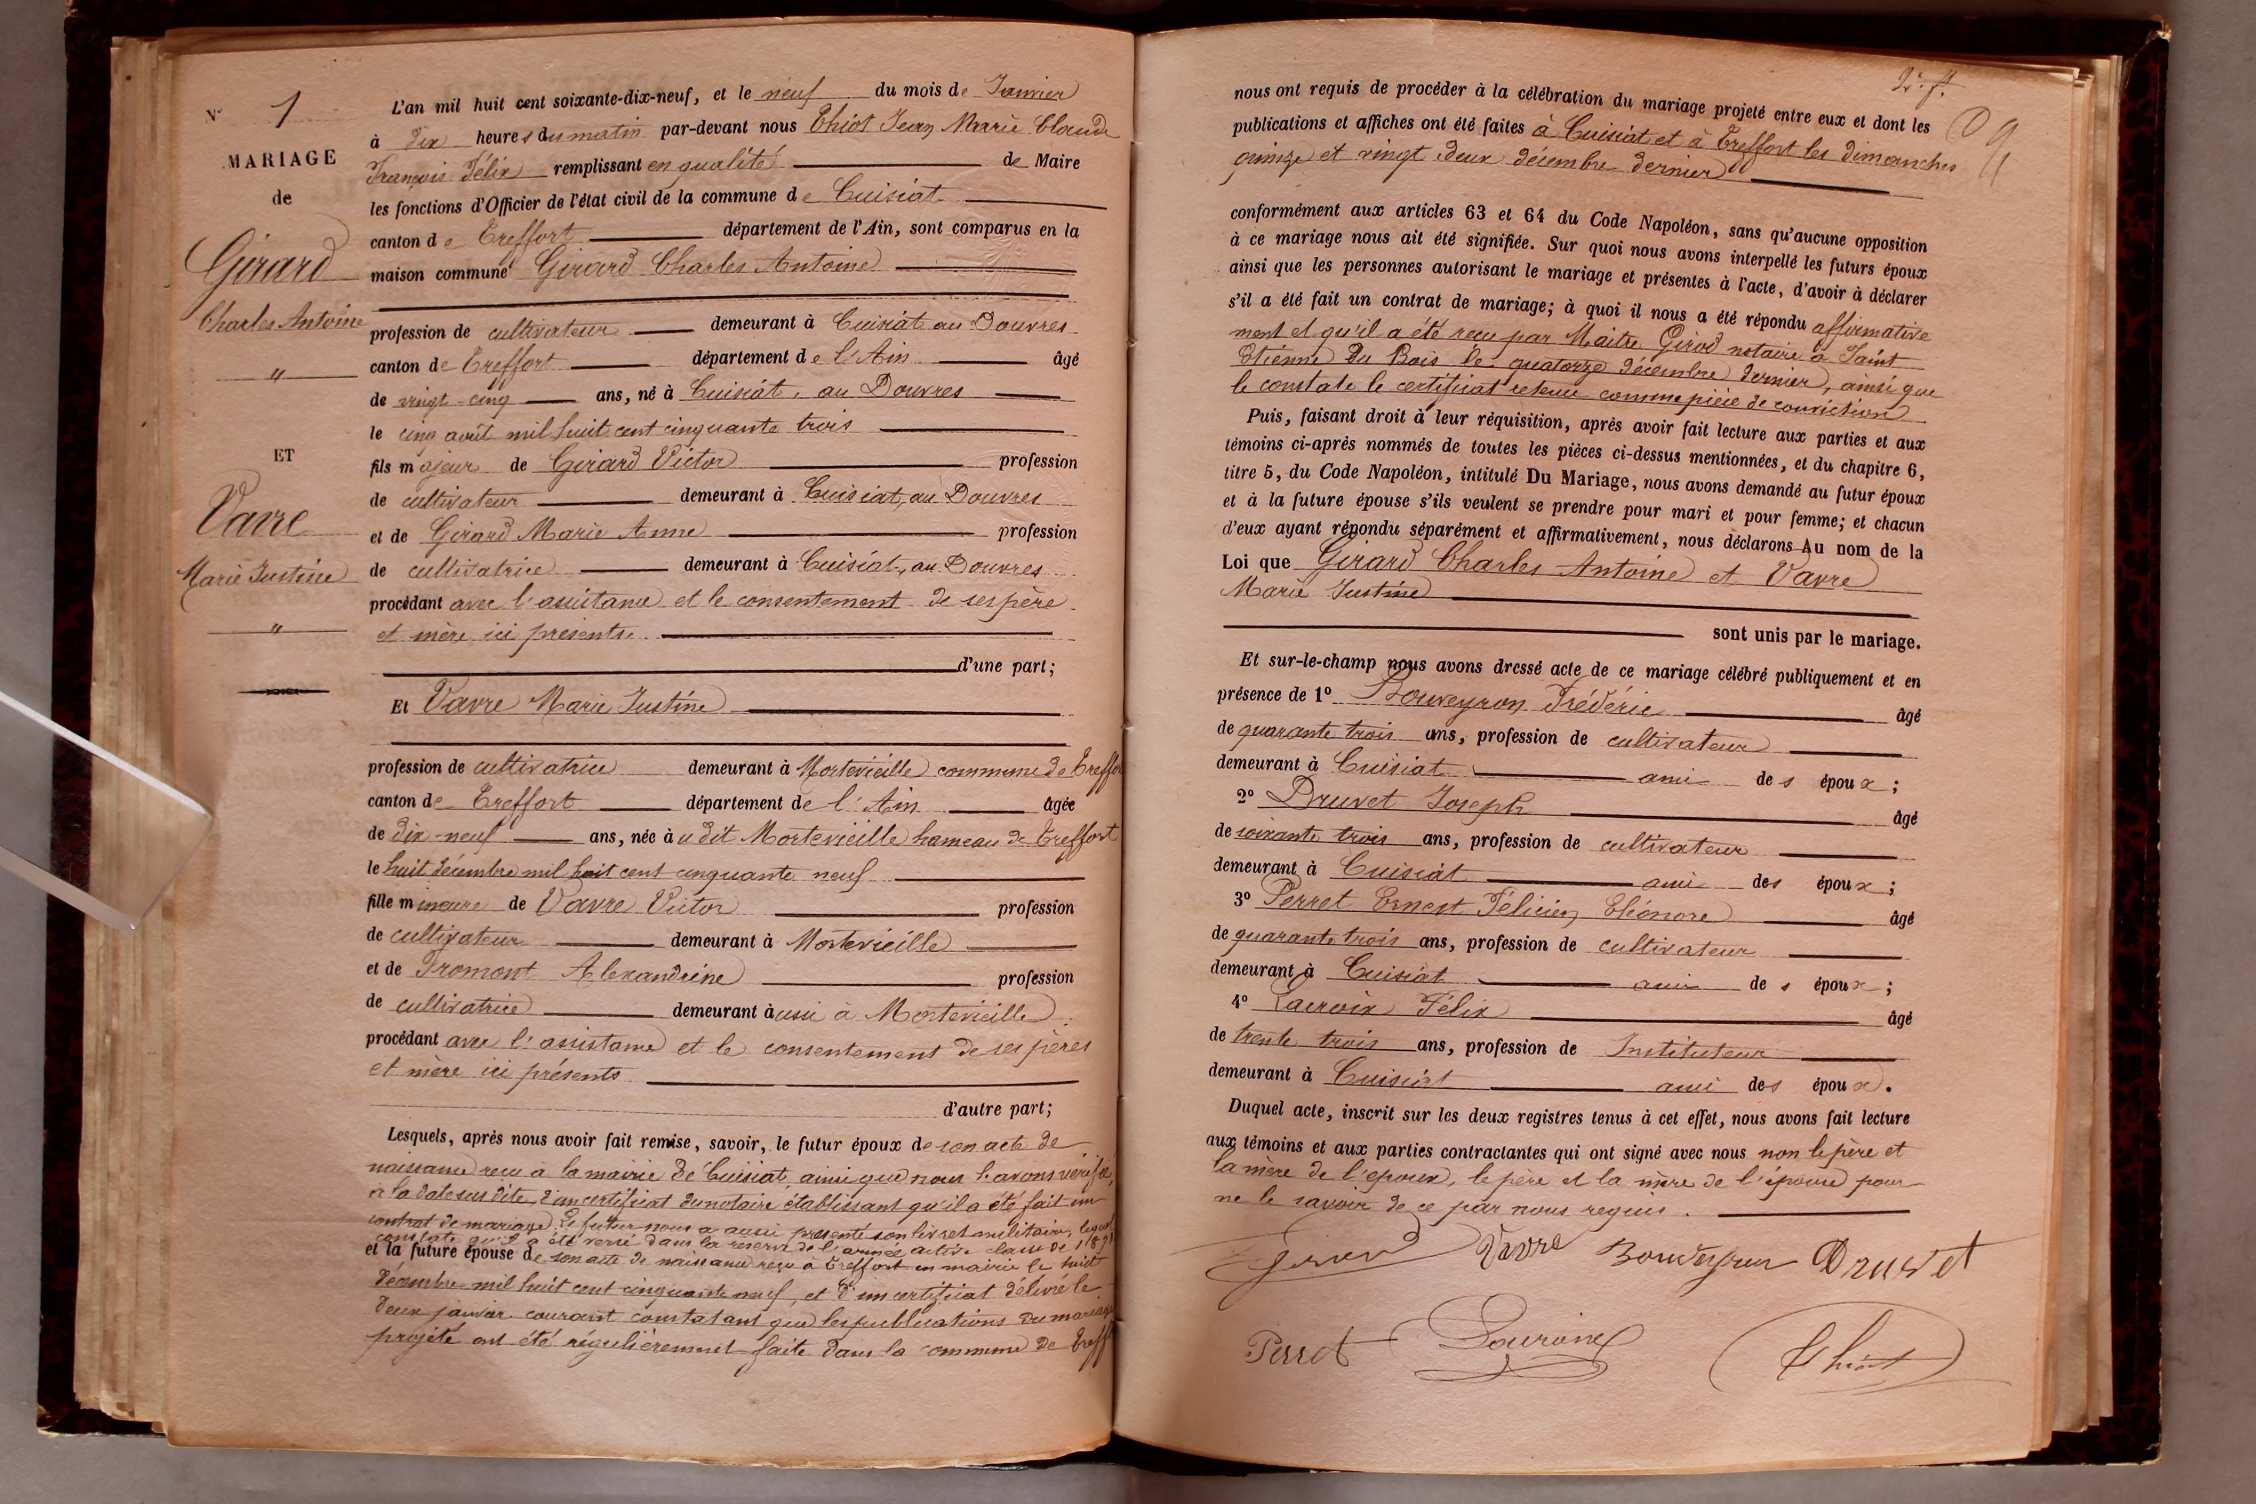 N° 1
MARIAGE
de
Girard
Charles Antoine
"
ET
Vavre
Marie Justine
"
L'an mil huit cent soixante-dix-neuf, et le neuf du mois de Janvier
à dix heures du matin par-devant nous Thiot Jean Marie Claude
François Félix remplissant en qualité de Maire
les fonctions d'Officier de l'état civil de la commune de Cuisiat
canton de Treffort département de l'Ain, sont comparus en la
maison commune Girard Charles Antoine
profession de cultivateur demeurant à Cuisiat au Douvres
canton de Treffort département de l'Ain âgé
de vingt-cinq ans, né à Cuisiat, au Douvres
le cinq août mil huit cent cinquante trois
fils majeur de Girard Victor profession
de cultivateur demeurant à Cuisiat, au Douvres
et de Girard Marie Anne profession
de cultivatrice demeurant à Cuisiat, au Douvres
procédant avec l'assistance et le consentement de ses père
et mère ici présents.
d'une part;
Et Vavre Marie Justine
profession de cultivatrice demeurant à Mortevieille commune de Treffor
canton de Treffort département de l'Ain âgée
de dix-neuf ans, née àu dit Mortevieille hameau de Treffort
le huit décembre mil huit cent cinquante neuf
fille mineure de Vavre Victor profession
de cultivateur demeurant à Mortevieille
et de Fromont Alexandrine profession
de cultivatrice demeurant àussi à Mortevieille
procédant avec l'assistance et le consentement de ses pères
et mère ici présents
d'autre part;
Lesquels, après nous avoir fait remise, savoir, le futur époux de son acte de
naissance reçu à la mairie de Cuisiat, ainsi que nous l'avons vérifié,
à la date sus dite, d'un certificat du notaire établissant qu'il a été fait un
contrat de mariage. Le futur nous a aussi présenté son livret militaire, lequel
constate qu'il a été versé dans la réserve de l'armée active classe de 187
et la future épouse de son acte de naissance reçu à Treffort en mairie le huit
décembre mil huit cent cinquante neuf, et d'un certificat délivré le
deux janvier courant constatant que les publications du mariage
projeté ont été régulièrement faite dans la commune de Treff
2e f.
nous ont requis de procéder à la célébration du mariage projeté entre eux et dont les
publications et affiches ont été faites à Cuisiat et à Treffort les dimanches
quinze et vingt deux décembre dernier
conformément aux articles 63 et 64 du Code Napoléon, sans qu'aucune opposition
à ce mariage nous ait été signifiée. Sur quoi nous avons interpellé les futurs époux
ainsi que les personnes autorisant le mariage et présentes à l'acte, d'avoir à déclarer
s'il a été fait un contrat de mariage; à quoi il nous a été répondu affirmative
ment et qu'il a été reçu par Maître Girod notaire à Saint
Etienne du Bois le quatorze décembre dernier, ainsi que
le constate le certificat retenu comme pièce de conviction
Puis, faisant droit à leur réquisition, après avoir fait lecture aux parties et aux
témoins ci-après nommés de toutes les pièces ci-dessus mentionnées, et du chapitre 6,
titre 5, du Code Napoléon, intitulé Du Mariage, nous avons demandé au futur époux
et à la future épouse s'ils veulent se prendre pour mari et pour femme; et chacun
d'eux ayant répondu séparément et affirmativement, nous déclarons Au nom de la
Loi que Girard Charles Antoine et Vavre
Marie Justine
sont unis par le mariage.
Et sur-le-champ nous avons dressé acte de ce mariage célébré publiquement et en
présence de 1° Bouveyron Frédéric âgé
de quarante trois ans, profession de cultivateur
demeurant à Cuisiat ami des époux;
2° Druvet Joseph âgé
de soixante trois ans, profession de cultivateur
demeurant à Cuisiat ami des époux;
3° Perret Ernest Félicien Eléonore âgé
de quarante trois ans, profession de cultivateur
demeurant à Cuisiat ami des époux;
4° Lacroix Félix âgé
de trente trois ans, profession de Instituteur
demeurant à Cuisiat ami des époux.
Duquel acte, inscrit sur les deux registres tenus à cet effet, nous avons fait lecture
aux témoins et aux parties contractantes qui ont signé avec nous non le père et
la mère de l'époux, le père et la mère de l'épouse pour
ne le savoir de ce par nous requis.
Girard Vavre Bouveyron Druvet
Perret Thiot